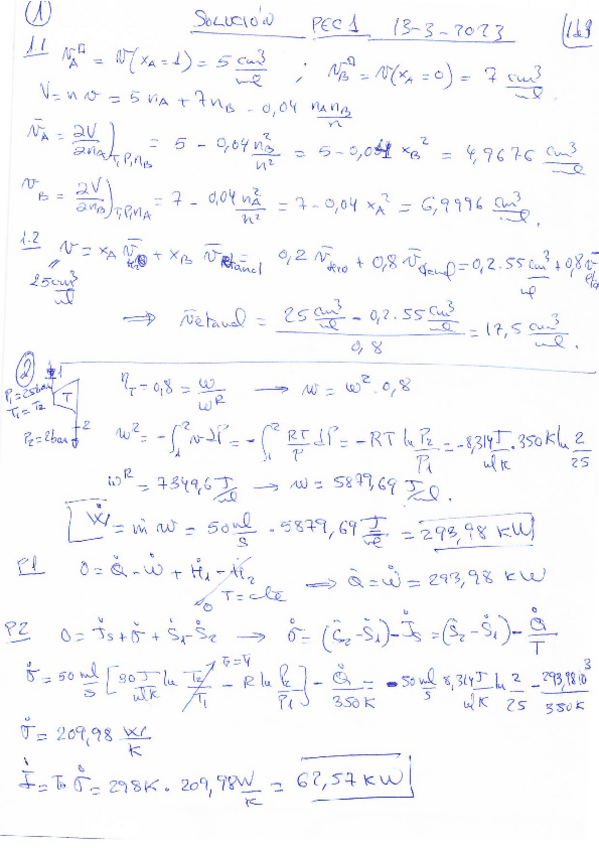 ① SOLUCIÓN PEC1 13-3-2023 1 de 3
1.1 v_A^□ = v(x_A=1) = 5 cm³/ml ; v_B^□ = v(x_A=0) = 7 cm³/ml
V = n v = 5 n_A + 7 n_B - 0,04 n_A n_B/n
v̄_A = ∂V/∂n_A)_{T,P,n_B} = 5 - 0,04 n_B²/n² = 5 - 0,04 x_B² = 4,9676 cm³/ml
v̄_B = ∂V/∂n_B)_{T,P,n_A} = 7 - 0,04 n_A²/n² = 7 - 0,04 x_A² = 6,9996 cm³/ml.
1.2 v = x_A v̄ + x_B v̄_etanol = 0,2 v̄ + 0,8 v̄_etanol = 0,2 · 55 cm³/ml + 0,8 v̄
25 cm³/ml
⇒ v̄ etanol = (25 cm³/ml - 0,2 · 55 cm³/ml)/0,8 = 17,5 cm³/ml.
② 1
P₁ = 25 bar T₁ = T₂ T η_T = 0,8 = w/w^R → w = w^R · 0,8
P₂ = 2 bar 2 w^R = -∫₁² v dP = -∫₁² RT/P dP = -RT ln P₂/P₁ = -8,314 J/ml K · 350 K ln 2/25
w^R = 7349,6 J/ml → w = 5879,69 J/ml.
Ẇ = ṁ w = 50 ml/s · 5879,69 J/ml = 293,98 kW
P1 0 = Q̇ - Ẇ + Ḣ₁ - Ḣ₂ 0 T = cte ⇒ Q̇ = Ẇ = 293,98 kW
P2 0 = J̇s + σ̇ + Ṡ₁ - Ṡ₂ → σ̇ = (Ṡ₂ - Ṡ₁) - J̇s = (Ṡ₂ - Ṡ₁) - Q̇/T
σ̇ = 50 ml/s [30 J/ml K ln T₂/T₁ - R ln P₂/P₁] - Q̇/350 K = -50 ml/s 8,314 J/ml K ln 2/25 - 293,98·10³/350 K
T₂=T₁
σ̇ = 209,98 W/K
İ = T₀ σ̇ = 298 K · 209,98 W/K = 62,57 kW